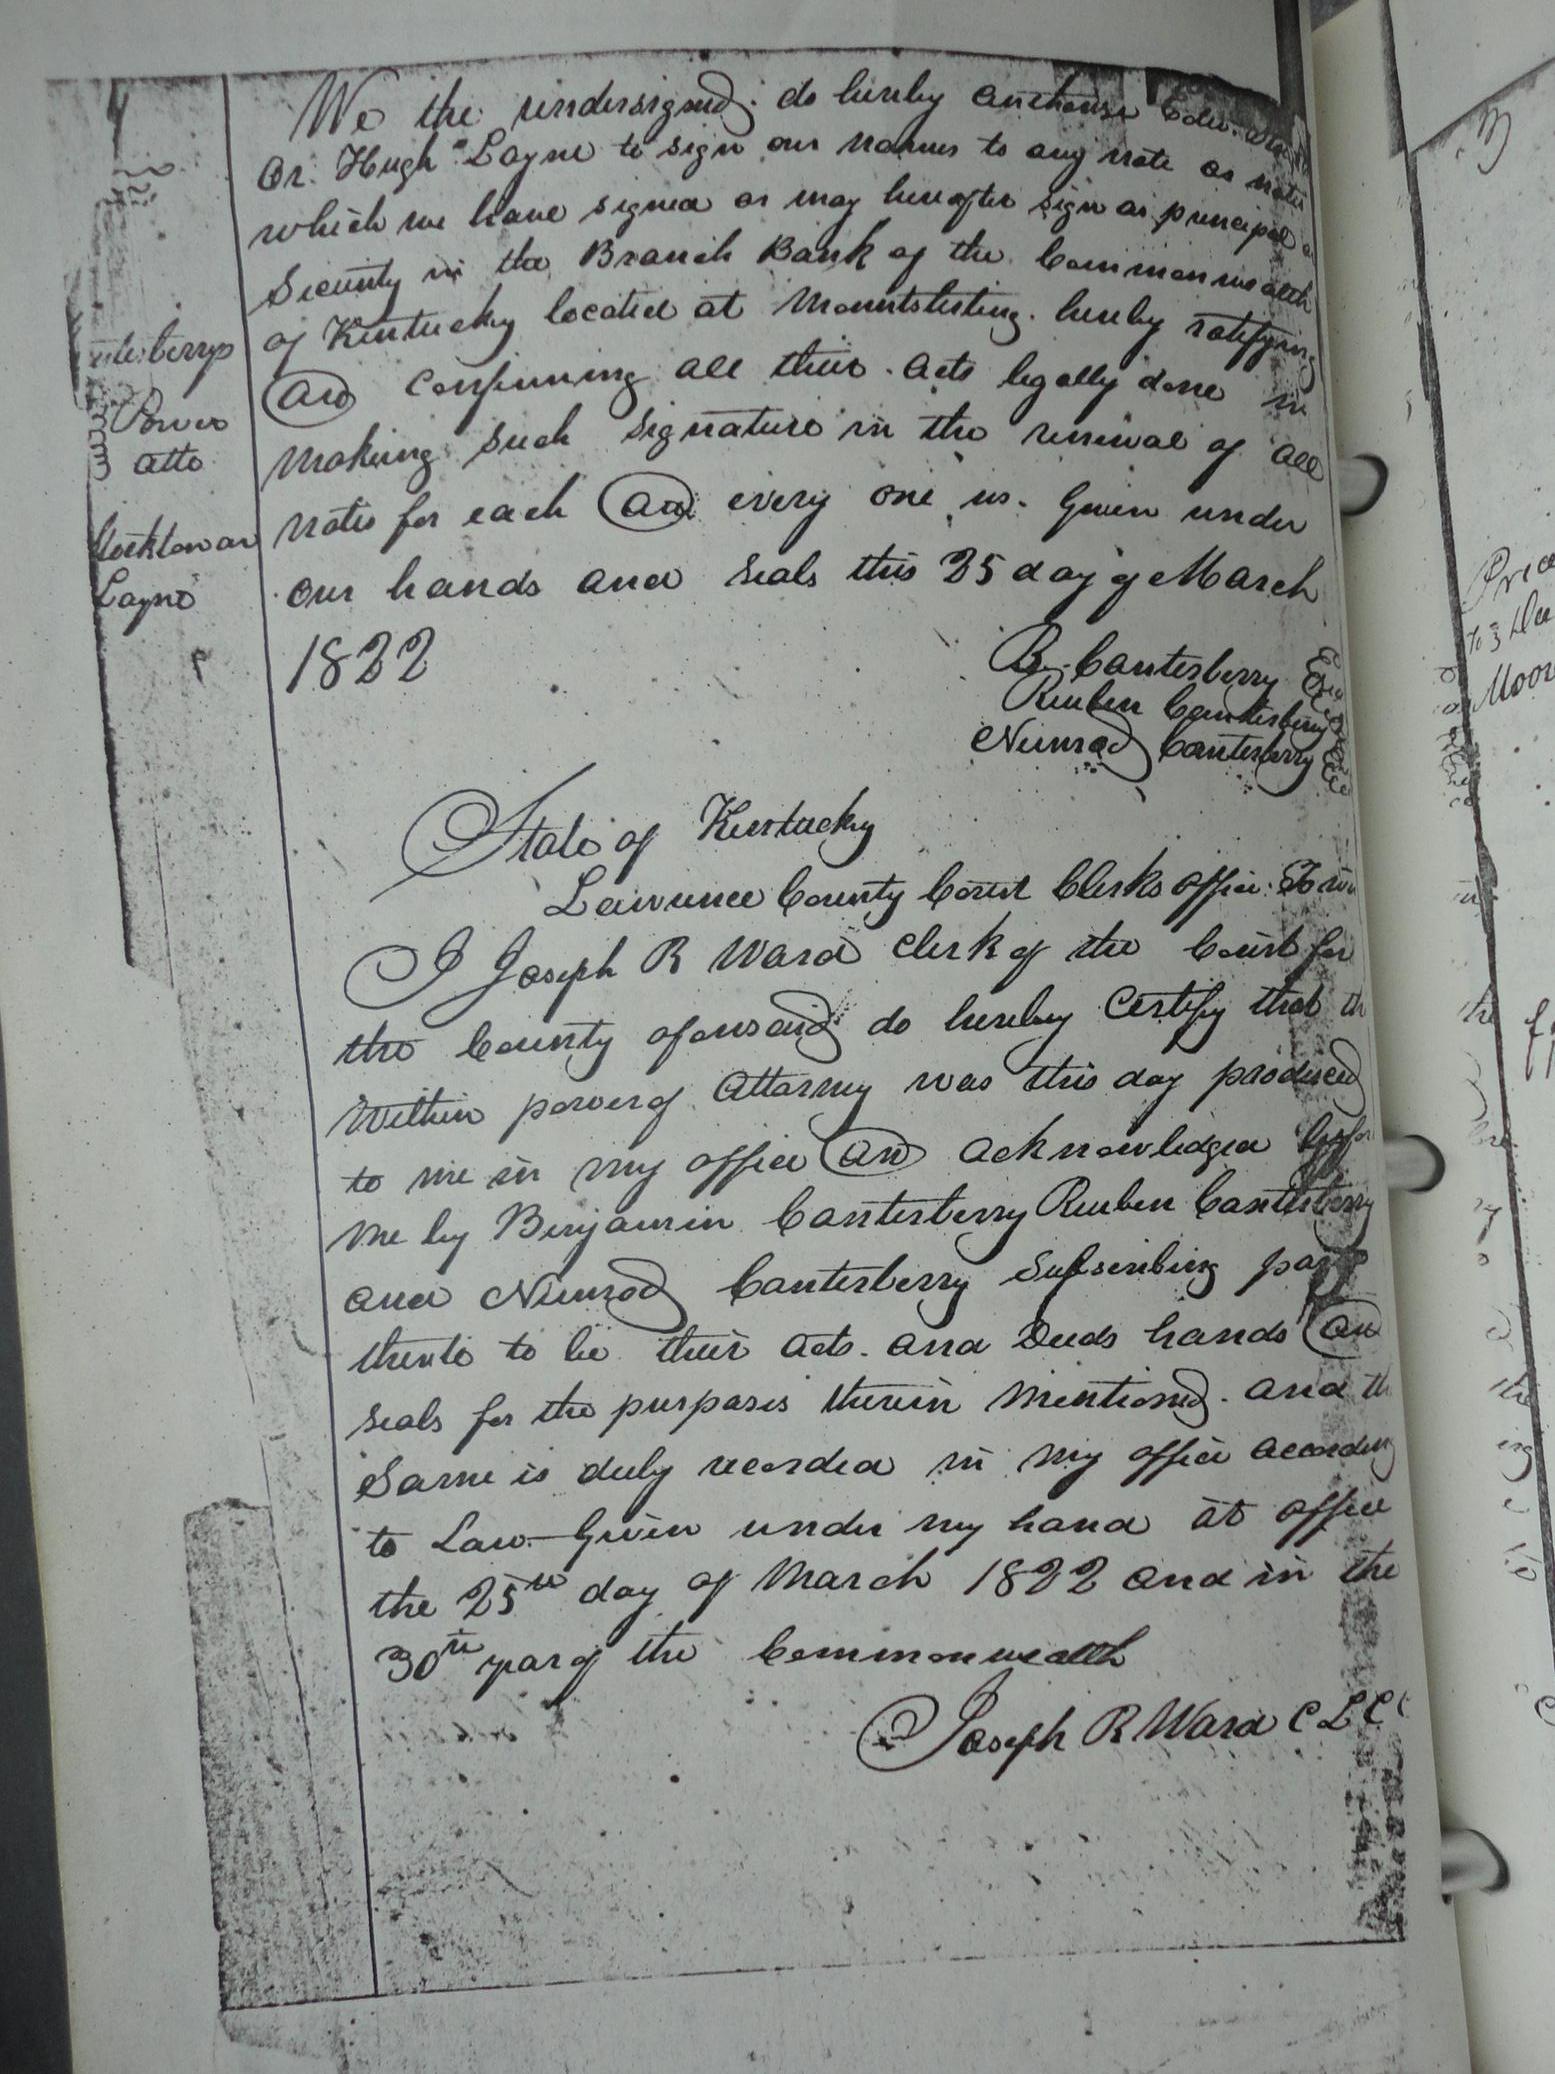 4
We the undersigned do hereby authorise
or Hugh Layne to sign our names to any note or notes
which we have signed or may hereafter sign as principal
Security in the Branch Bank of the Commonwealth
of Kentucky located at Mountsterling. hereby ratifying
and confirming all their acts legally done in
making such signature in the renewal of all
notes for each and every one us. Given under
our hands and seals this 25 day of March
1822
Power
atto
Layne
B. Canterberry
Reuben Canterberry
Nimrod Canterberry
State of Kentucky
Lawrence County Court Clerks office
I Joseph R Ward Clerk of the Court for
the County aforesaid do hereby Certify that th
within power of Attorney was this day produced
to me in my office and acknowledged befor
me by Benjamin Canterberry Reuben Canterberry
and Nimrod Canterberry Subscribing
thereto to be their acts and Deeds hands and
seals for the purposes therein mentioned. and th
Same is duly recorded in my office according
to Law—Given under my hand at office
the 25th day of March 1822 and in the
30th year of the Commonwealth
Joseph R Ward C L C
Moor
the
the